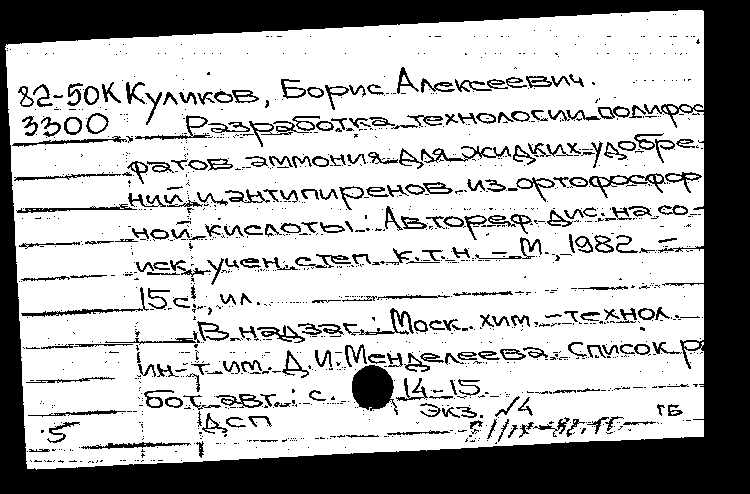 82-50К Куликов, Борис Алексеевич.
3300 Разработка технологии полифос
фатов аммония для жидких удобре-
ний и антипиренов из ортофосфор
ной кислоты: Автореф. дис. на со-
иск. учен. степ. к.т.н. - М., 1982. -
15 с., ил.
В надзаг.: Моск. хим.-технол.
ин-т им. Д.И. Менделеева. Список ра
бот авт.: с. 14-15.
Экз. №4 ГБ
5 ДСП